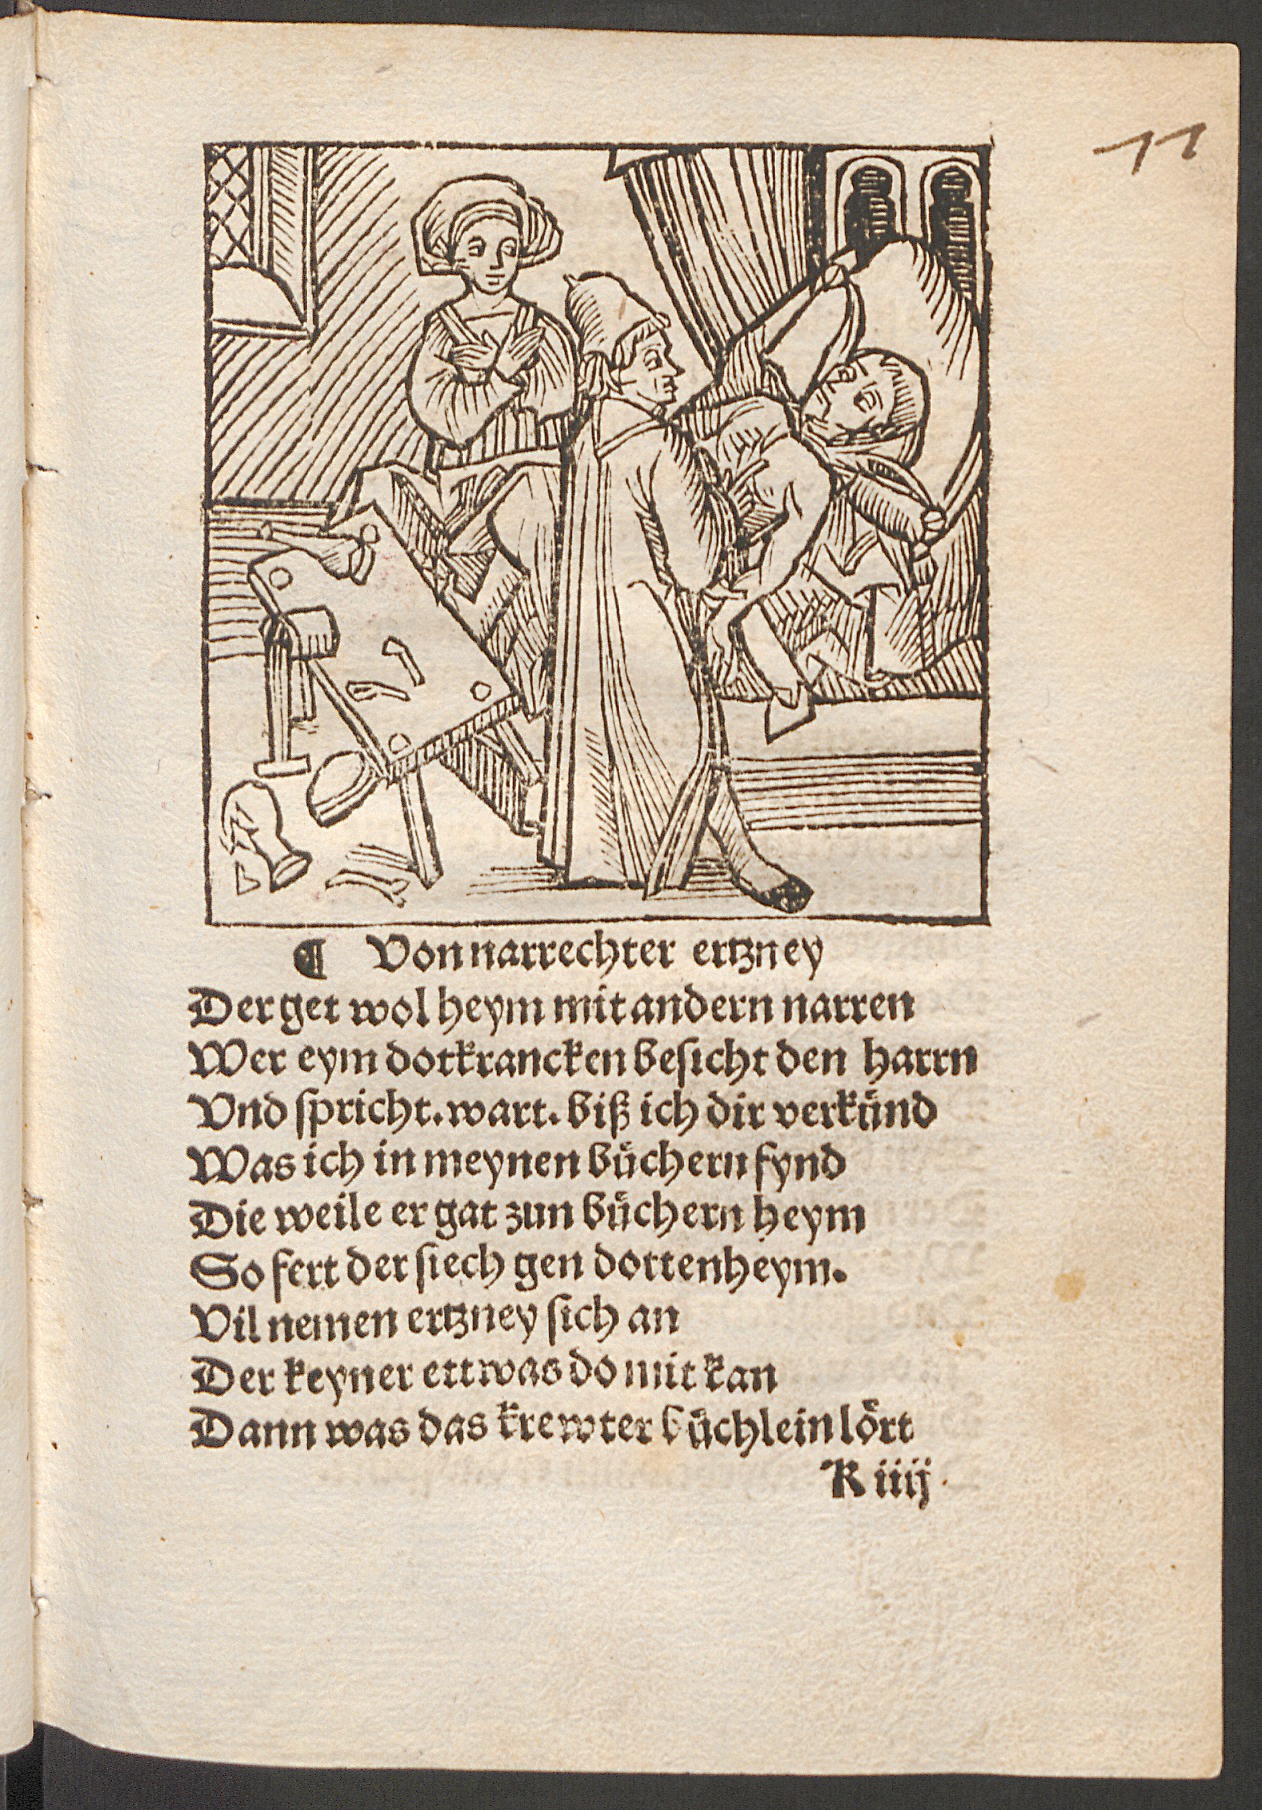 11
¶ Von narrechter ertzney
Der get wol heym mit andern narren
Wer eym dotkrancken besicht den harrn
Vnd spricht. wart. biß ich dir verkünd
Was ich in meynen bůchern fynd
Die weile er gat zun bůchern heym
So fert der siech gen dottenheym.
Vil nemen ertzney sich an
Der keyner ettwas do mit kan
Dann was das krewter bůchlein lört
R iiij